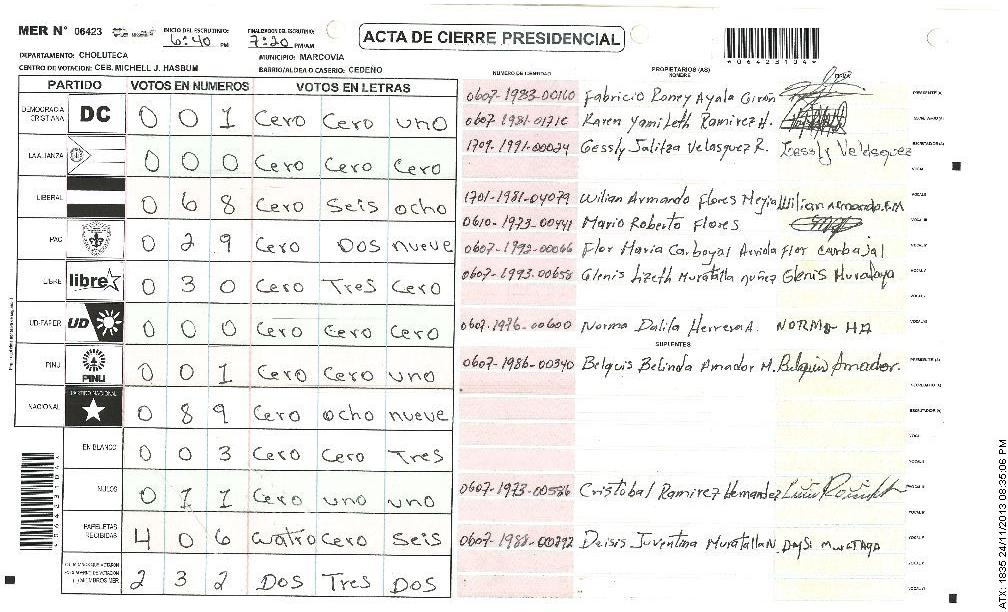 MER N° 06423
INICIO DEL ESCRUTINIO: 6:40 PM
FINALIZACION DEL ESCRUTINIO: 7:20 PM/AM
ACTA DE CIERRE PRESIDENCIAL
DEPARTAMENTO: CHOLUTECA
MUNICIPIO: MARCOVIA
CENTRO DE VOTACION: CEB. MICHELL J. HASBUM
BARRIO/ALDEA O CASERIO: CEDEÑO
PARTIDO VOTOS EN NUMEROS VOTOS EN LETRAS
DEMOCRACIA CRISTIANA DC 0 0 1 Cero Cero uno
LA ALIANZA 0 0 0 Cero Cero Cero
LIBERAL 0 6 8 Cero Seis ocho
PAC 0 2 9 Cero Dos nueve
LIBRE libre 0 3 0 Cero Tres Cero
UD-FAPER UD 0 0 0 Cero Cero Cero
PINU PINU 0 0 1 Cero Cero uno
NACIONAL PARTIDO NACIONAL 0 8 9 Cero ocho nueve
EN BLANCO 0 0 3 Cero Cero Tres
NULOS 0 1 1 Cero uno uno
PAPELETAS RECIBIDAS 4 0 6 Cuatro Cero Seis
2 3 2 Dos Tres Dos
NUMERO DE IDENTIDAD
PROPIETARIOS (AS)
NOMBRE
0607-1983-00160 Fabricio Roney Ayala Giron
Karen Yamileth Ramirez H.
1709-1991-00024 Gessly Jalitza Velasquez R. Gessly Velasquez
1701-1981-04079 Wilian Armando Flores Mejia
0610-1973-00441 Mario Roberto Flores
Flor Maria Carbajal Flor Carbajal
0607-1993-00658 Glenis Lizeth Muratalla nuñez Glenis
0607-1976-00600 Norma Dalila Herrera A. NORMA HA
SUPLENTES
0607-1986-00340 Belquis Belinda Amador M. Belquis Amador.
0607-1973-00586 Cristobal Ramirez Hernandez
Deisis Juventina Muratalla N
ATX: 1835 24/11/2013 08:35:06 PM